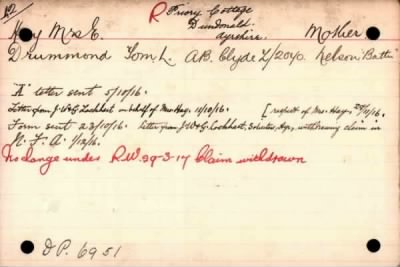 R Priory Cottage
Dundonald
Hay Mrs E. Ayrshire. Mother
Drummond Tom L. A.B. Clyde Z/2040. Nelson Battn
"A" letter sent 5/10/16.
Letter from J.W&G. Lockhart on behalf of Mrs Hay. 11/10/16. [respect of Mrs Hay. 27/10/16.
Form sent 23/10/16. Letter from J.W&G. Lockhart, Solicitors, Ayr, withdrawing claim in
N. F. A. 1/12/16.
No change under R.W. 29-3-17 Claim withdrawn
D.P. 6951